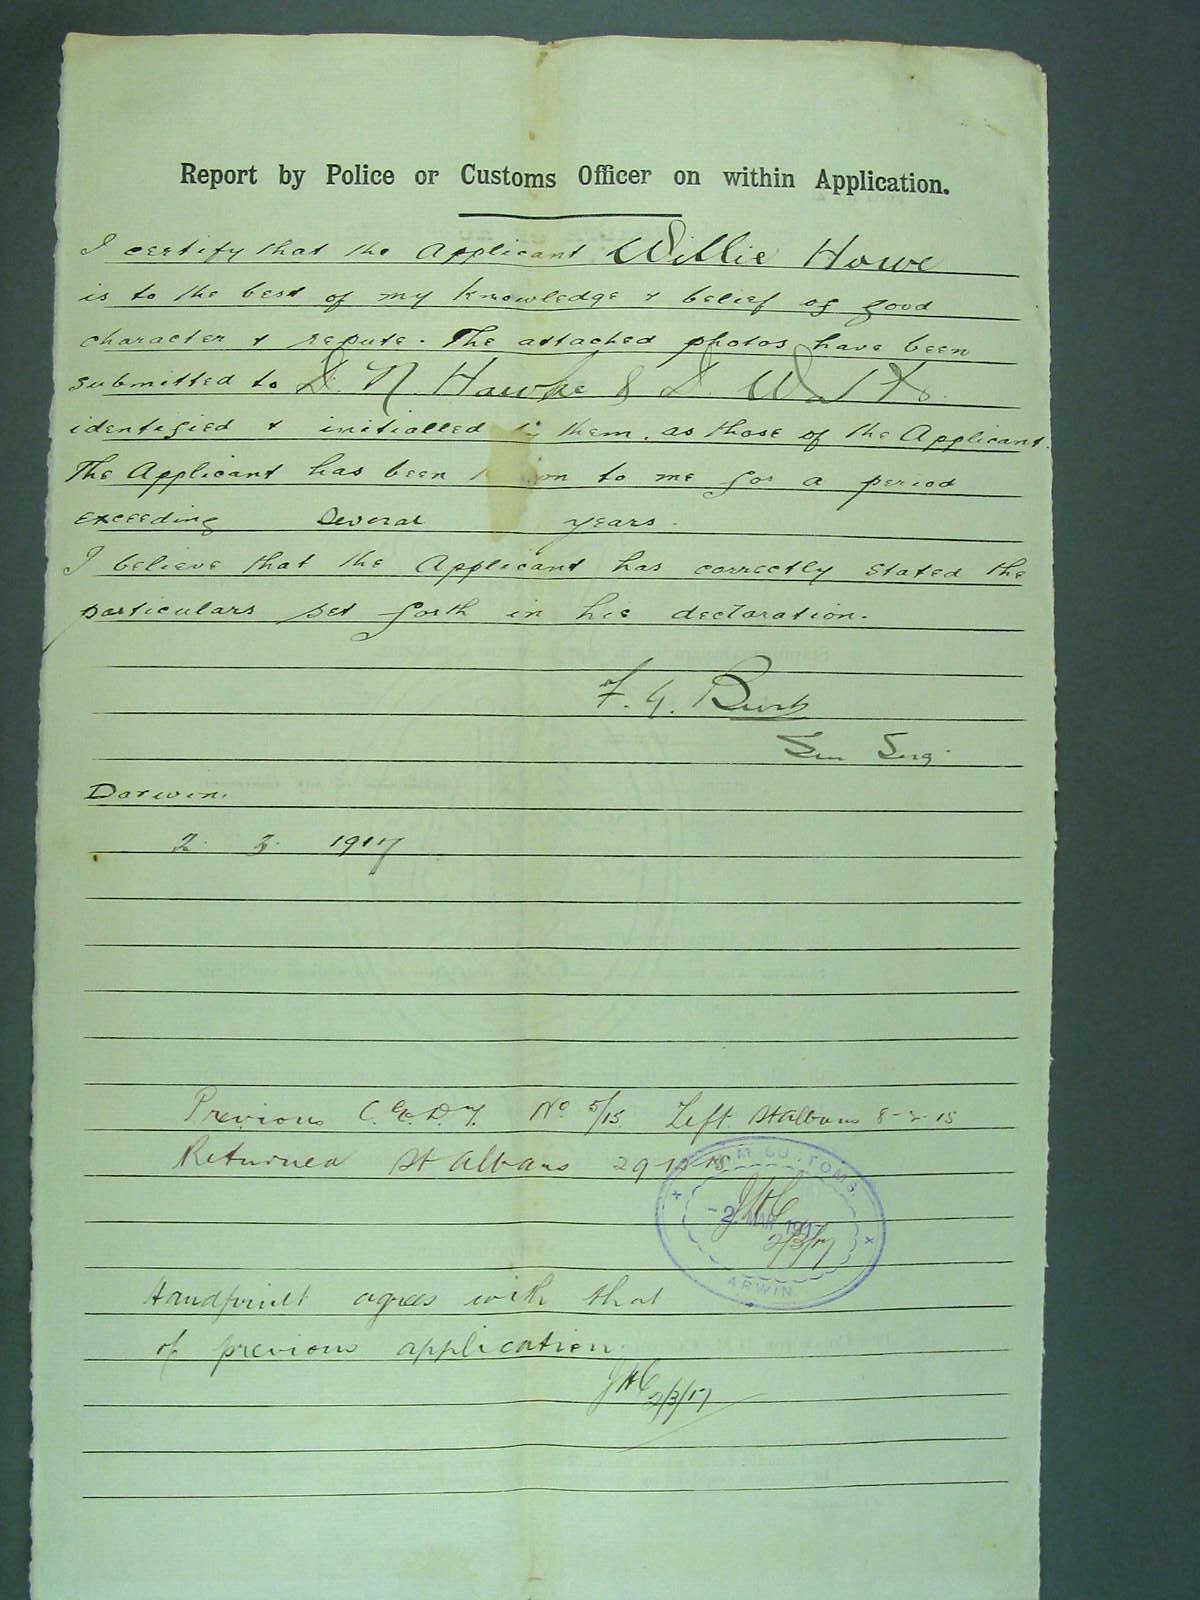 Report by Police or Customs Officer on within Application.
I certify that the Applicant Willie Howe
is to the best of my knowledge & belief of good
character & repute. The attached photos have been
submitted to D. N. Hawke & D.
identified & initialled by them, as those of the Applicant.
The Applicant has been to me for a period
exceeding several years.
I believe that the Applicant has correctly stated the
particulars set forth in his declaration.
F. G.
Sen Serg.
Darwin.
2. 3. 1917
Previous C.E.D.T. No 5/15 Left St Albans 8-2-15
Returned St Albans 29-
CUSTOMS
JHC
-2 MAR 1917
2/3/17
ARWIN
Handprint agrees with that
of previous application.
JHC 2/3/17